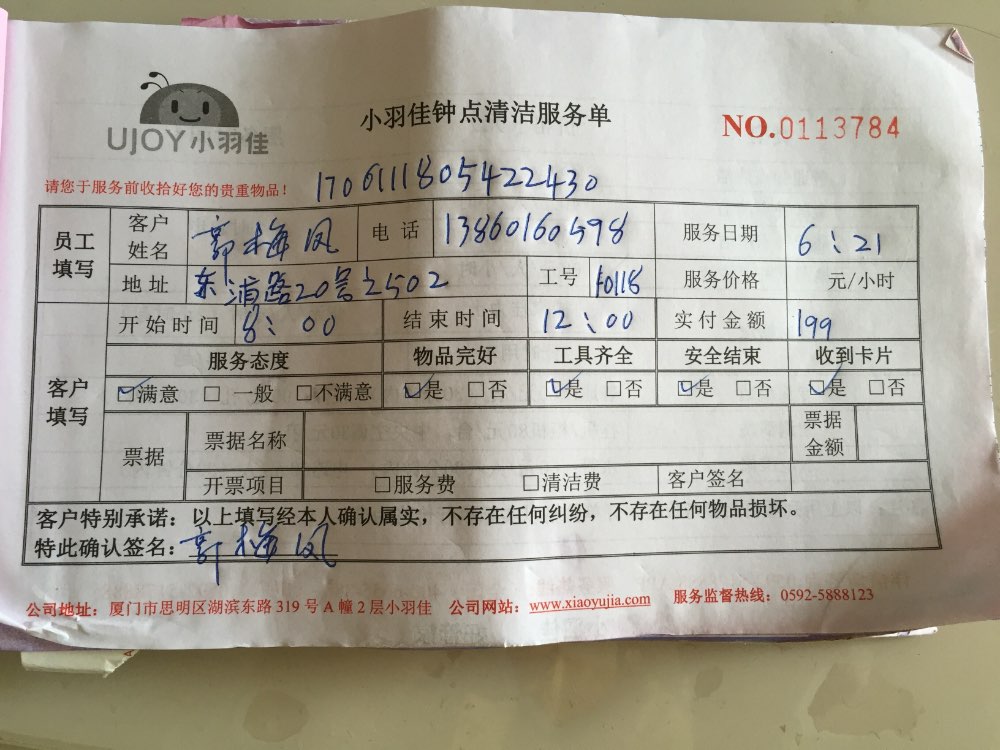 UJOY小羽佳
小羽佳钟点清洁服务单
NO.0113784
请您于服务前收拾好您的贵重物品！ 1706111805422430
员工填写 客户姓名 郭梅凤 电话 13860160598 服务日期 6:21
地址 东浦路20号之502 工号 10118 服务价格 元/小时
客户填写 开始时间 8:00 结束时间 12:00 实付金额 199
服务态度 物品完好 工具齐全 安全结束 收到卡片
☑满意 □一般 □不满意 ☑是 □否 ☑是 □否 ☑是 □否 ☑是 □否
票据 票据名称 票据金额
开票项目 □服务费 □清洁费 客户签名
客户特别承诺：以上填写经本人确认属实，不存在任何纠纷，不存在任何物品损坏。
特此确认签名：郭梅凤
公司地址：厦门市思明区湖滨东路319号A幢2层小羽佳 公司网站：www.xiaoyujia.com 服务监督热线：0592-5888123